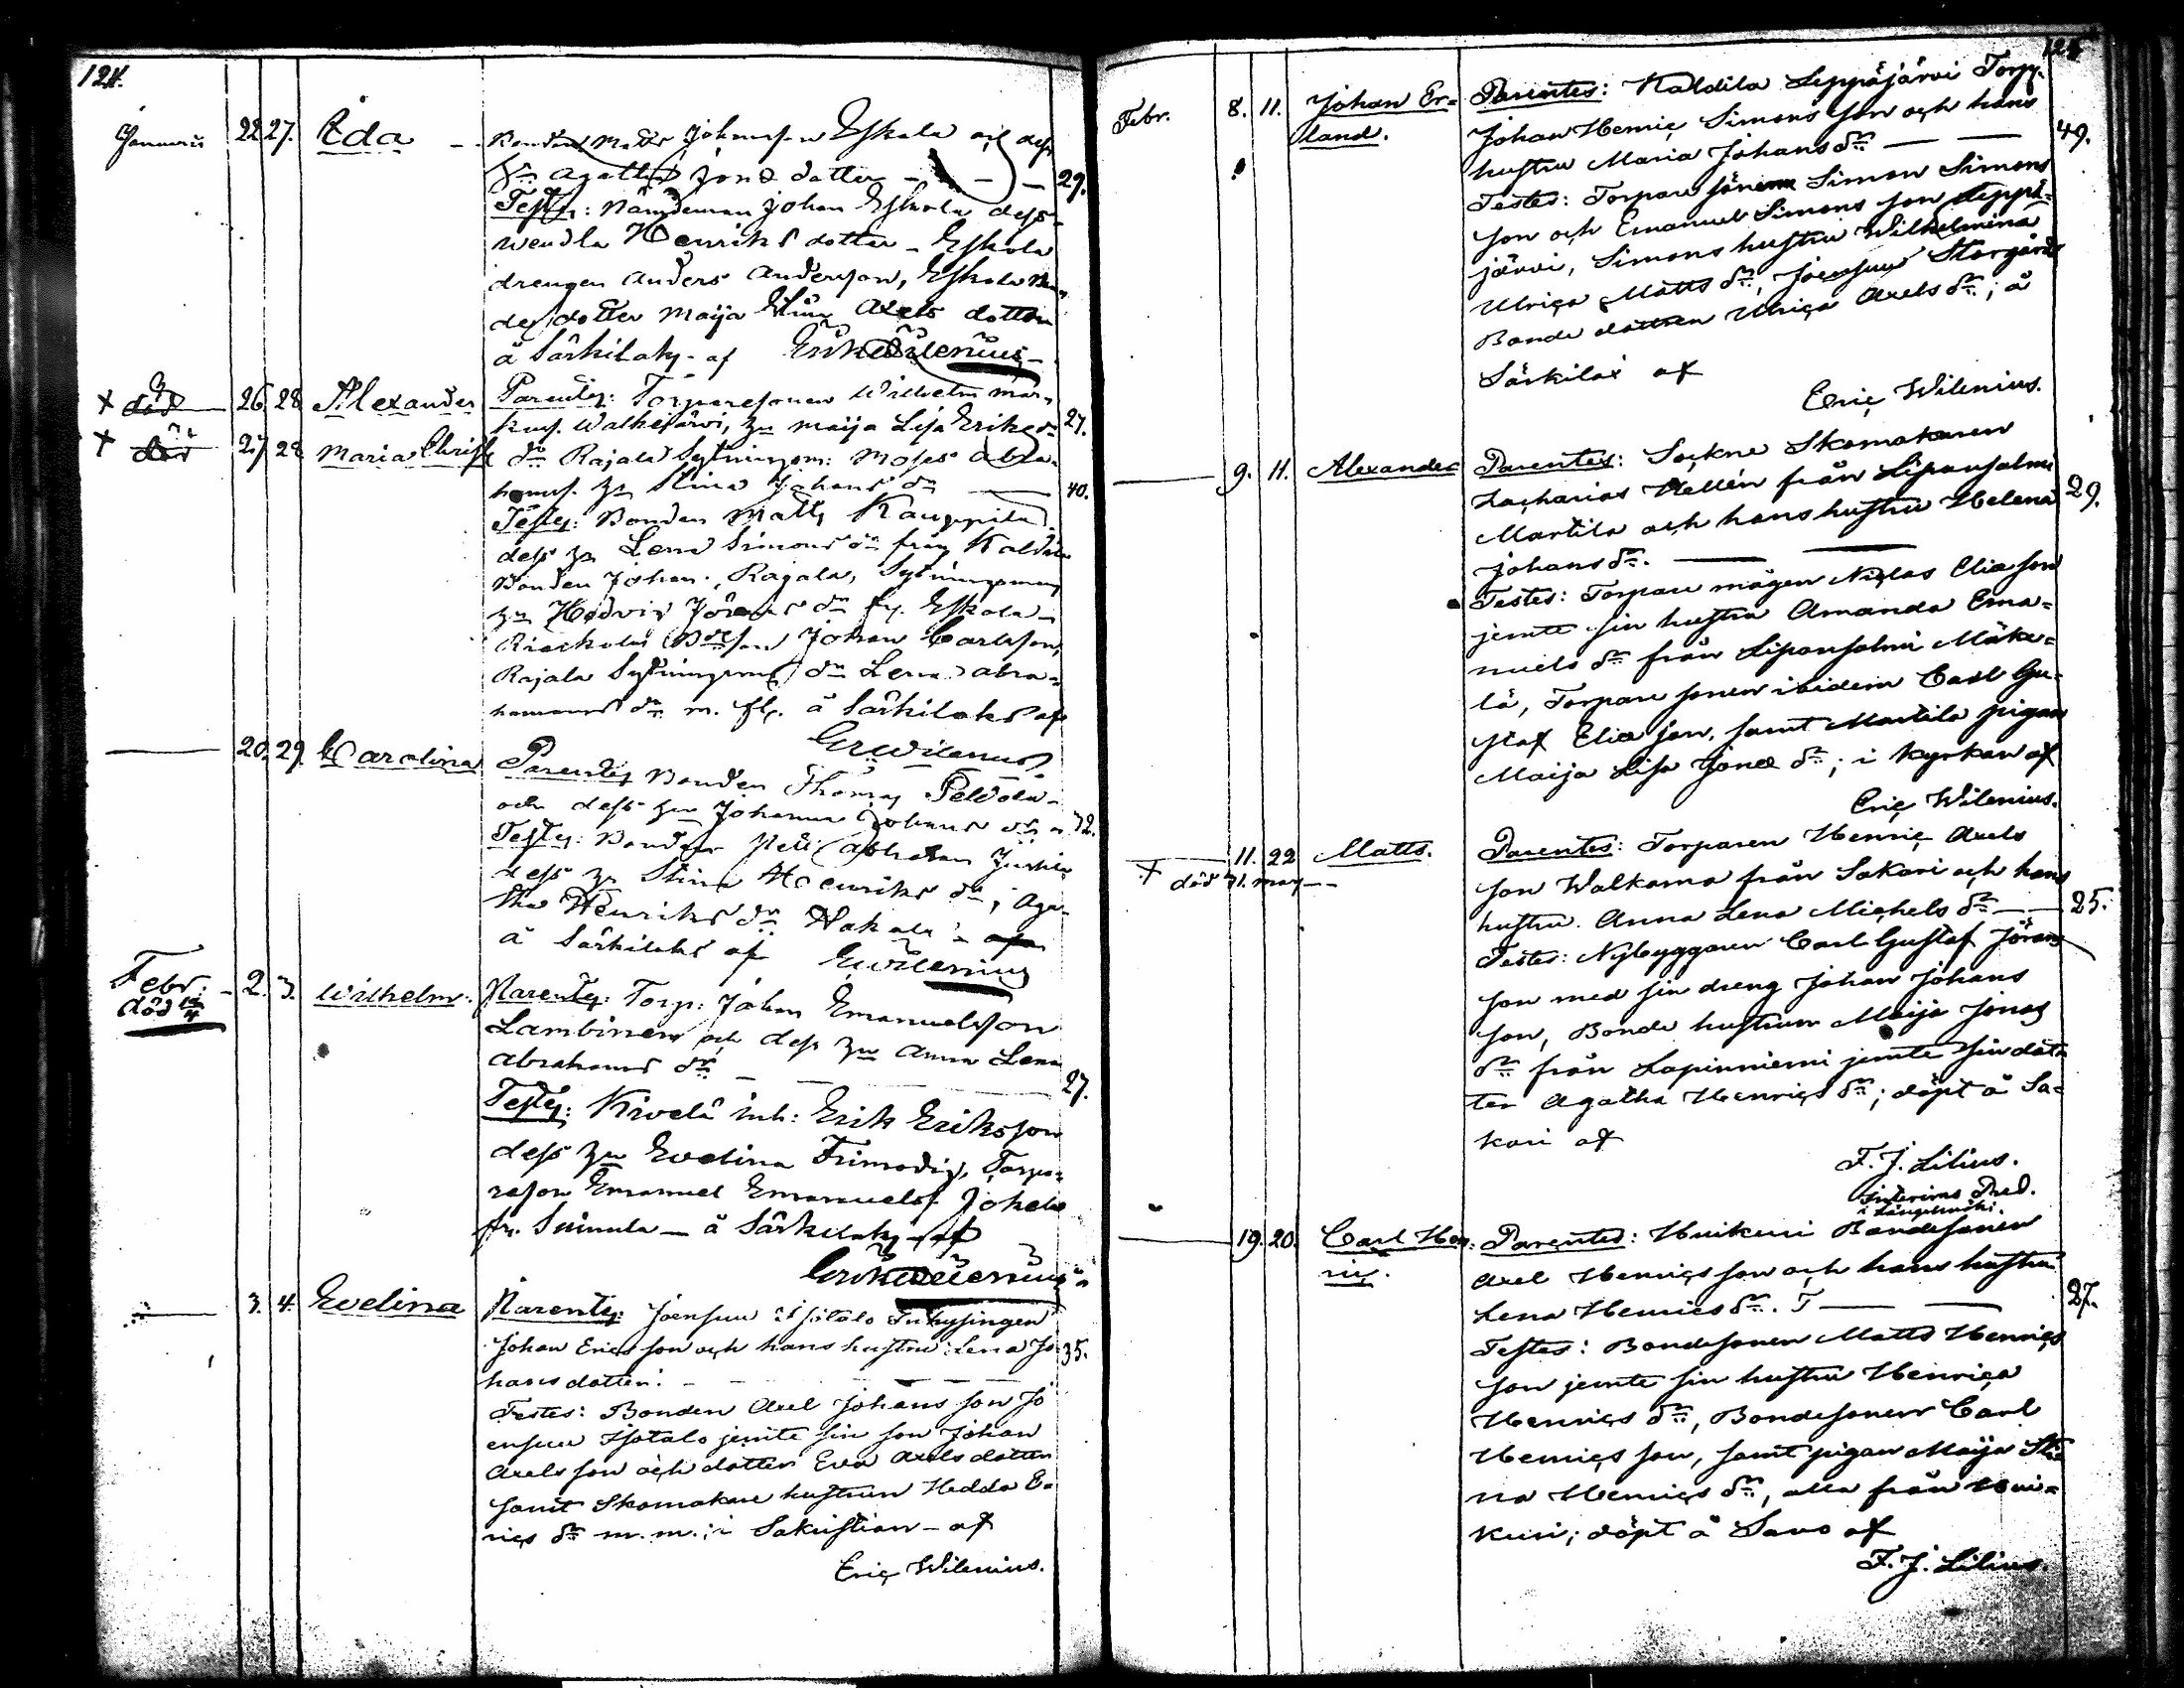 124.
Januarii 22 27. Eda Bonden Matts Johansson Eskola och dess
Agatha Jons dotter 29.
Testes: Nämdeman Johan Eskola dess
Wendla Henriks dotter - Eskola
drengen Anders Andersson, Eskola
dotter Maija Axels dotter
å Särkilaks af Erik Wilenius
+ död 26 28 Alexander Parentes: Torparesonen Wilhelm Mar-
kuss. Walkejärvi, Maija Lisa Eriks dr 27.
+ död 27 28 Maria Christ dr Rajala Sytningsm: Moses Abra-
hamss. Stina Johans dr 40.
Testes: Bonden Matts Kauppila
dess Lena Simons dr från Kaldila
Bonden Johan Rajala, Sytningsmans
Hedvig Jörans dr fr. Eskola
Johan Carlsson,
Rajala Sytningsmans dr Lena Abra-
hams dr m. fl. å Särkilaks af
Er Wilenius
20. 29. Carolina Parentes Bonden Thomas Peldola
och dess Johanna Johans dr 32.
Testes: Bonden Abraham
dess Stina Henriks dr, Aga-
tha Henriks dr Hakala
å Särkilaks af E Wilenius
Febr. 2. 3. Wilhelm. Parentes: Torp: Johan Emanuelsson
död 12/4 Lambinen och dess Anna Lena
Abrahams dr 27.
Testes: Kivelä inh: Erik Eriksson
dess Evelina Frimodig, Torpa-
reson Emanuel Emanuelss. Jokela
fr. Suinula - å Särkilaks af
Erik Wilenius
3. 4. Evelina Parentes: Joensuu Isotalo Inhysingen
Johan Erics son och hans hustru Lena Jo 35.
hans dotter.
Testes: Bonden Axel Johans son Jo
ensuu Isotalo jemte sin son Johan
Axels son och dotter Eva Axels dotter
samt Skomakare hustrun Hedda E-
rics dr m. m.; i Sakristian - af
Eric Wilenius.
125
Febr. 8. 11. Johan Er= Parentes: Kaldila Leppäjärvi Torp.
land. Johan Henric Simons son och hans
hustru Maria Johans dr 49.
Testes: Torpare sönerne Simon Simons
son och Emanuel Simons son Leppä-
järvi, Simons hustru Wilhelmina
Ulrica Matts dr, Joensuu Storgårds
Bonde dottren Ulrica Axels dr; å
Särkilax af
Eric Wilenius.
9. 11. Alexander Parentes: Sockne Skomakaren
Zacharias Hellén från Liponsalmi 29.
Martila och hans hustru Helena
Johans dr.
Testes: Torpare mågen Niclas Elia son
jemte sin hustru Amanda Ema=
nuels dr från Liponsalmi Mäke=
lä, Torpare sonen ibidem Carl Gu-
staf Elia son, samt Martila pigan
Maija Lisa Jonæ dr; i Kyrkan af
Eric Wilenius.
11. 22 Matts. Parentes: Torparen Henric Axels
+ död 31. may son Walkama från Sakari och hans
hustru Anna Lena Michels dr 25.
Testes: Nybyggaren Carl Gustaf Jörans
son med sin dreng Johan Johans
son, Bonde hustrun Maija Jonas
dr från Lapinniemi jemte sin dot=
ter Agatha Henrics dr; döpt å Sa=
kari af
F. J. Lilius.
interims Pred.
i Längelmäki.
19. 20. Carl Hen= Parentes: Huikuri Bondesonen
ric. Axel Henrics son och hans hustru
Lena Henrics dr. 27.
Testes: Bondesonen Matts Henrics
son jemte sin hustru Henrica
Henrics dr, Bondesonen Carl
Henrics son, samt pigan Maija Sti
na Henrics dr, alla från Hui=
kuri; döpt å Savo af
F. J. Lilius.